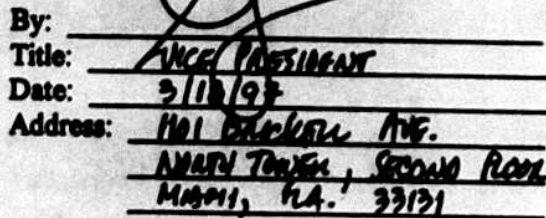 By:
Title: VICE PRESIDENT
Date: 3/18/97
Address: 1401 BRICKELL AVE.
NORTH TOWER, SECOND FLOOR
MIAMI, FLA. 33131